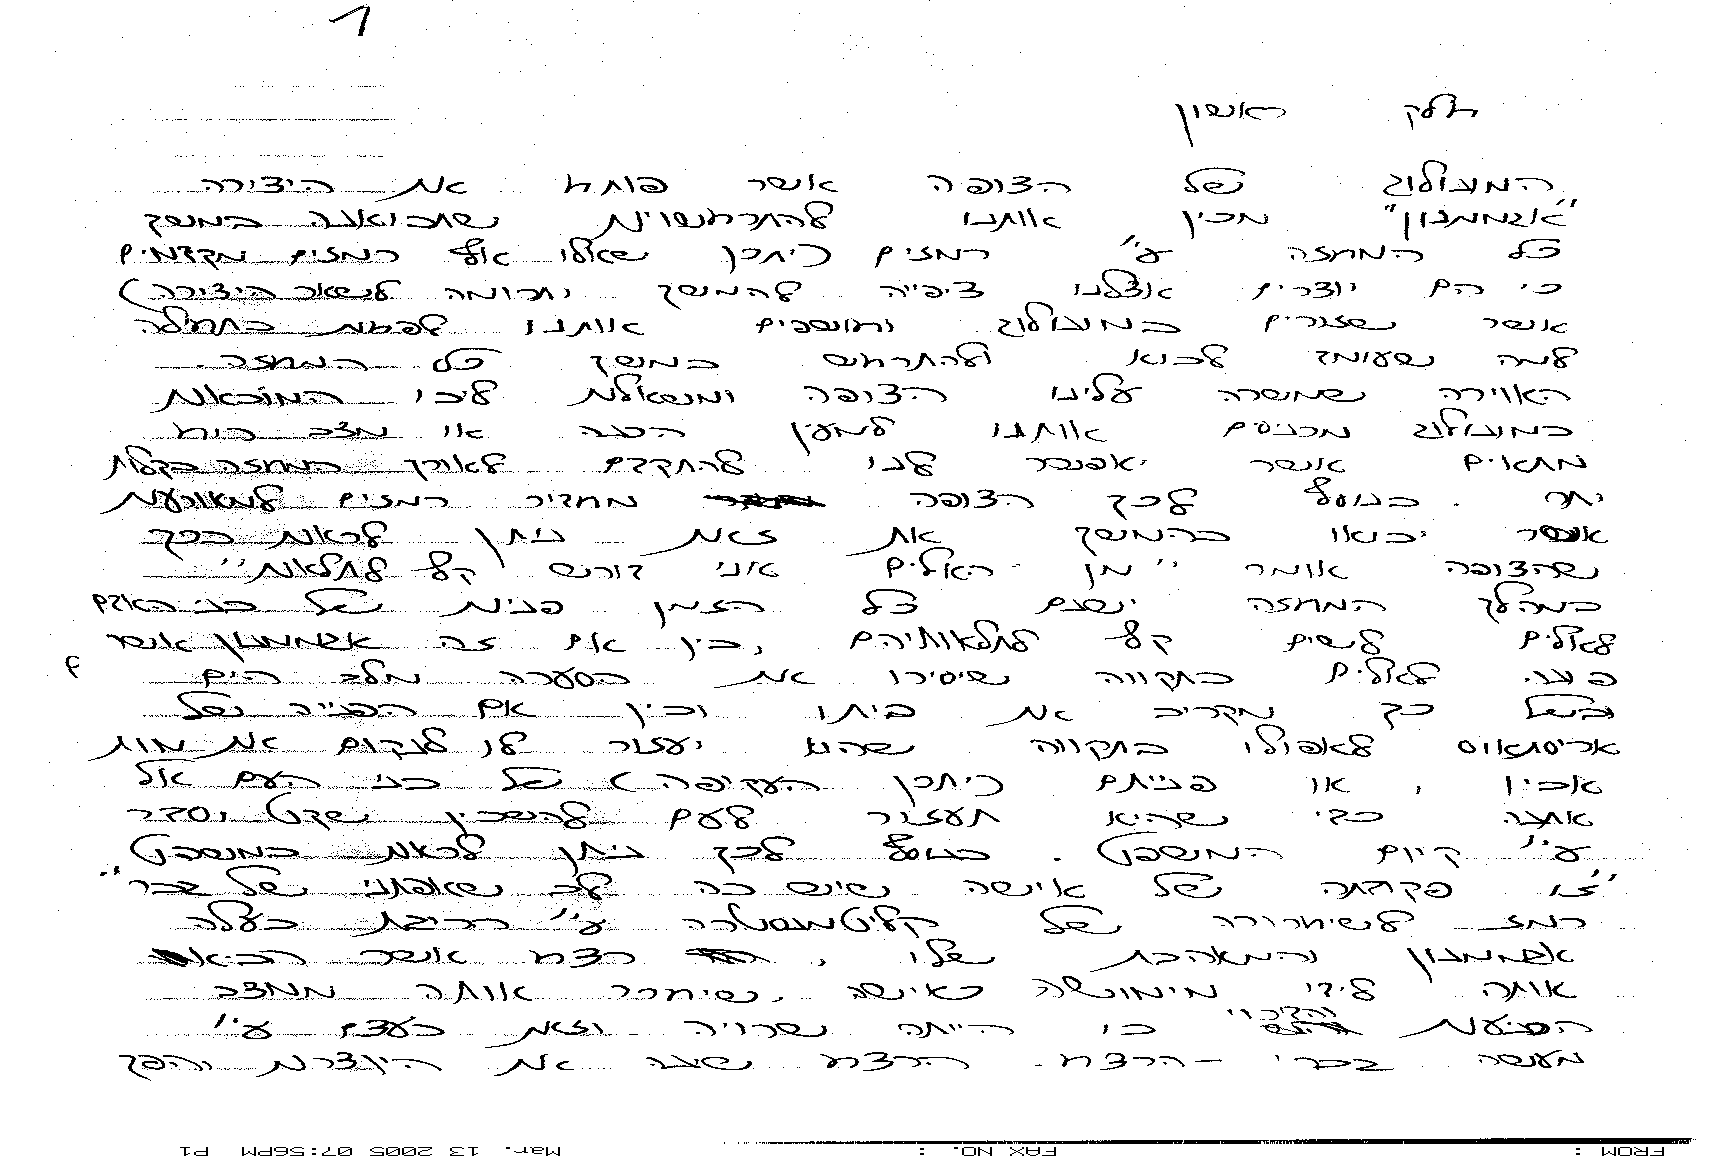 1
חלק ראשון
המונולוג של הצופה אשר פותח את היצירה
"אגממנון" מכין אותנו להתרחשויות שתבואנה במשך
כל המחזה ע"י רמזים (יתכן שאלו אף רמזים מקדמים
כי הם יוצרים אצלנו ציפייה להמשך ותרומה לשאר היצירה)
אשר שזורים במונולוג וחושפים אותנו לפחות בתחילה
למה שעומד לבוא ולהתרחש במשך כל המחזה.
האווירה שמשרה עלינו הצופה ומשאלת ליבו המובאות
במונולוג מכניסים אותנו למעין הכנה או מצב רוח
מתאים אשר יאפשר לנו להתקדם לאורך המחזה בקלות
יתר. בנוסף לכך הצופה מחדיר רמזים למאורעות
אשר יבואו בהמשך את זאת ניתן לראות בכך
שהצופה אומר "מן האלים אני דורש קץ לתלאות"
במהלך המחזה ישנם כל הזמן פניות של בני האדם
לאלים לשים קץ לתלאותיהם, בין אם זה אגממנון אשר
פונה לאלים בתקווה שיסירו את הסערה מלב הים
ובשל כך מקריב את ביתו ובין אם הפנייה של
אריסתאוס לאפולו בתקווה שהוא יעזור לו לנקום את מות
אביו, או פנייתם (יתכן העקיפה) של בני העם אל
אתנה כדי שהיא תעזור לעם להשכין שקט וסדר
ע"י קיום המשפט. בנוסף לכך ניתן לראות במשפט
"זו פקודתה של אישה שיש בה לב שאפתני של גבר"
רמז לשחרורה של קליטמנסטרה ע"י הריגת בעלה
אגממנון והמאהבת שלו, רצח אשר הביא
אותה לידי מימושה כאישה, שיחרר אותה ממצב
הכניעות והדיכוי כי הייתה שרויה וזאת בעצם ע"י
מעשה גברי - הרצח. הרצח שינה את היוצרות והפך
FROM : FAX NO. : Mar. 13 2005 07:56PM P1